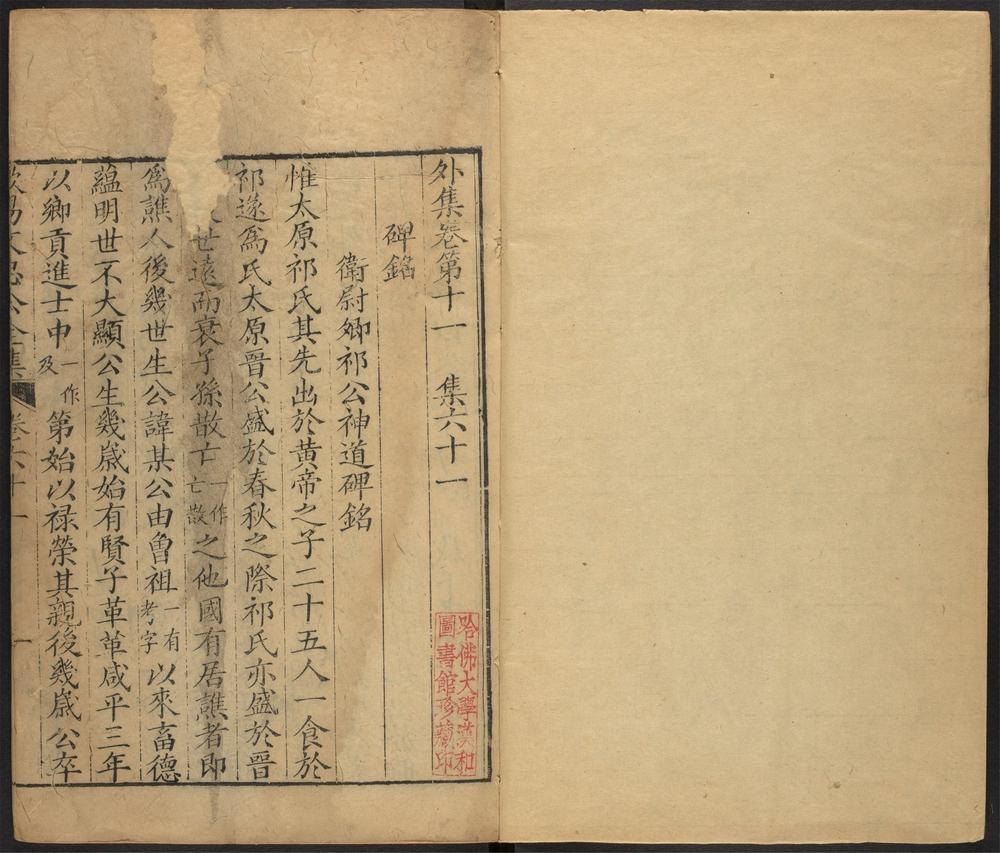 外集卷第十一 集六十一
碑銘
衛尉卿祁公神道碑銘
惟太原祁氏其先出於黃帝之子二十五人一食於
祁遂爲氏太原晉公盛於春秋之際祁氏亦盛於晉
世遠而衰子孫散亡一作亡散之他國有居譙者即
爲譙人後幾世生公諱某公由曾祖一有考字以來畜德
藴明世不大顯公生幾歲始有賢子革革咸平三年
以鄉貢進士中一作及第始以禄榮其親後幾歲公卒
歐陽文忠公全集 卷六十一 一
哈佛大學漢和圖書館珍藏印